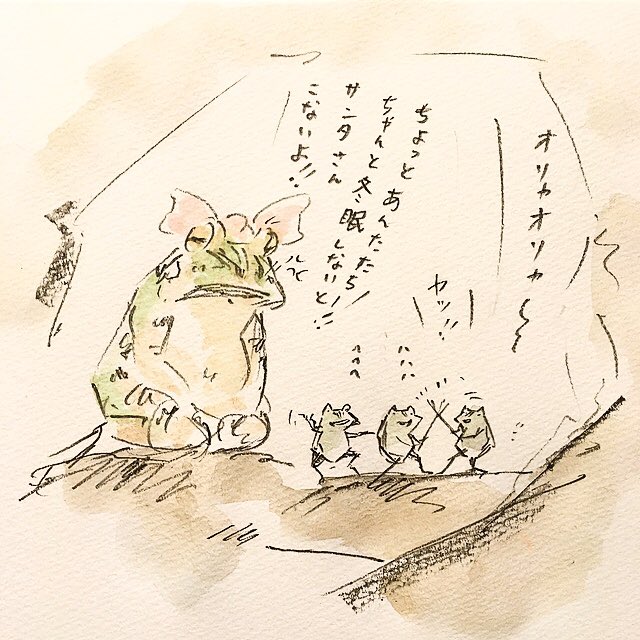 オリャオリャ〜
ちょっとあんたたち!
ちゃんと冬眠しないと!!
サンタさん
こないよ!!
ヤッ!!
ハハハ
へへへ